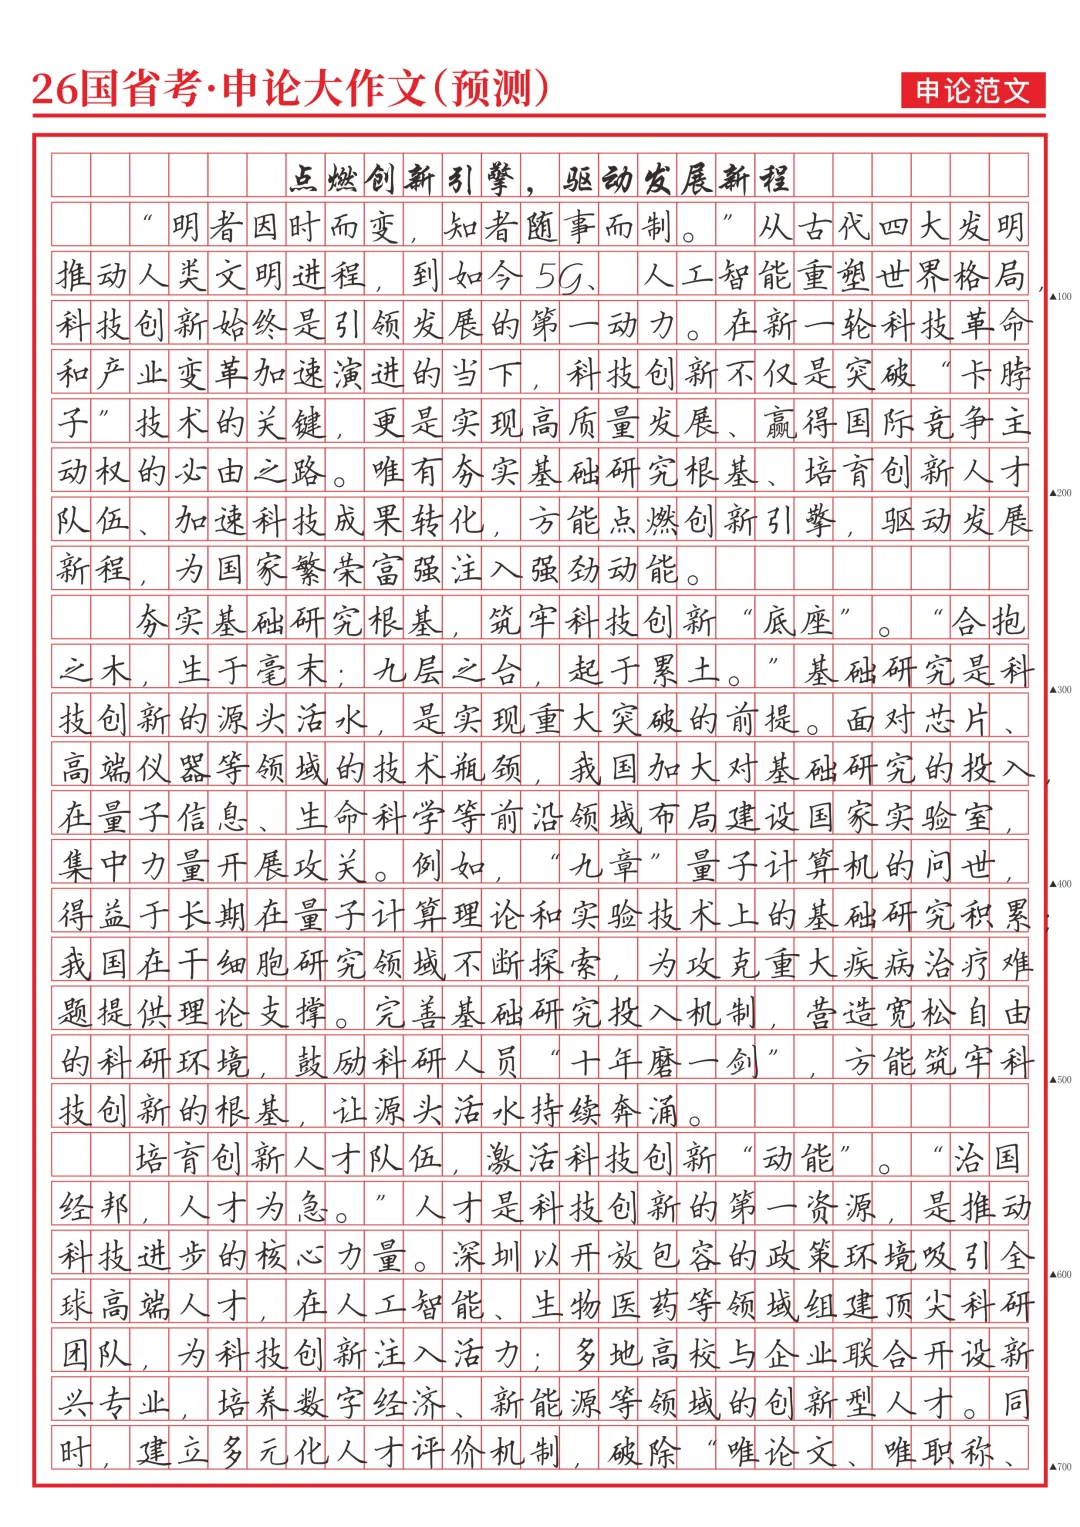 26国省考·申论大作文(预测)
申论范文
点燃创新引擎，驱动发展新程
“明者因时而变，知者随事而制。”从古代四大发明
推动人类文明进程，到如今5G、人工智能重塑世界格局，
▲100
科技创新始终是引领发展的第一动力。在新一轮科技革命
和产业变革加速演进的当下，科技创新不仅是突破“卡脖
子”技术的关键，更是实现高质量发展、赢得国际竞争主
动权的必由之路。唯有夯实基础研究根基、培育创新人才
▲200
队伍、加速科技成果转化，方能点燃创新引擎，驱动发展
新程，为国家繁荣富强注入强劲动能。
夯实基础研究根基，筑牢科技创新“底座”。“合抱
之木，生于毫末；九层之台，起于累土。”基础研究是科
▲300
技创新的源头活水，是实现重大突破的前提。面对芯片、
高端仪器等领域的技术瓶颈，我国加大对基础研究的投入，
在量子信息、生命科学等前沿领域布局建设国家实验室，
集中力量开展攻关。例如，“九章”量子计算机的问世，
▲400
得益于长期在量子计算理论和实验技术上的基础研究积累；
我国在干细胞研究领域不断探索，为攻克重大疾病治疗难
题提供理论支撑。完善基础研究投入机制，营造宽松自由
的科研环境，鼓励科研人员“十年磨一剑”，方能筑牢科
▲500
技创新的根基，让源头活水持续奔涌。
培育创新人才队伍，激活科技创新“动能”。“治国
经邦，人才为急。”人才是科技创新的第一资源，是推动
科技进步的核心力量。深圳以开放包容的政策环境吸引全
▲600
球高端人才，在人工智能、生物医药等领域组建顶尖科研
团队，为科技创新注入活力；多地高校与企业联合开设新
兴专业，培养数字经济、新能源等领域的创新型人才。同
时，建立多元化人才评价机制，破除“唯论文、唯职称、
▲700